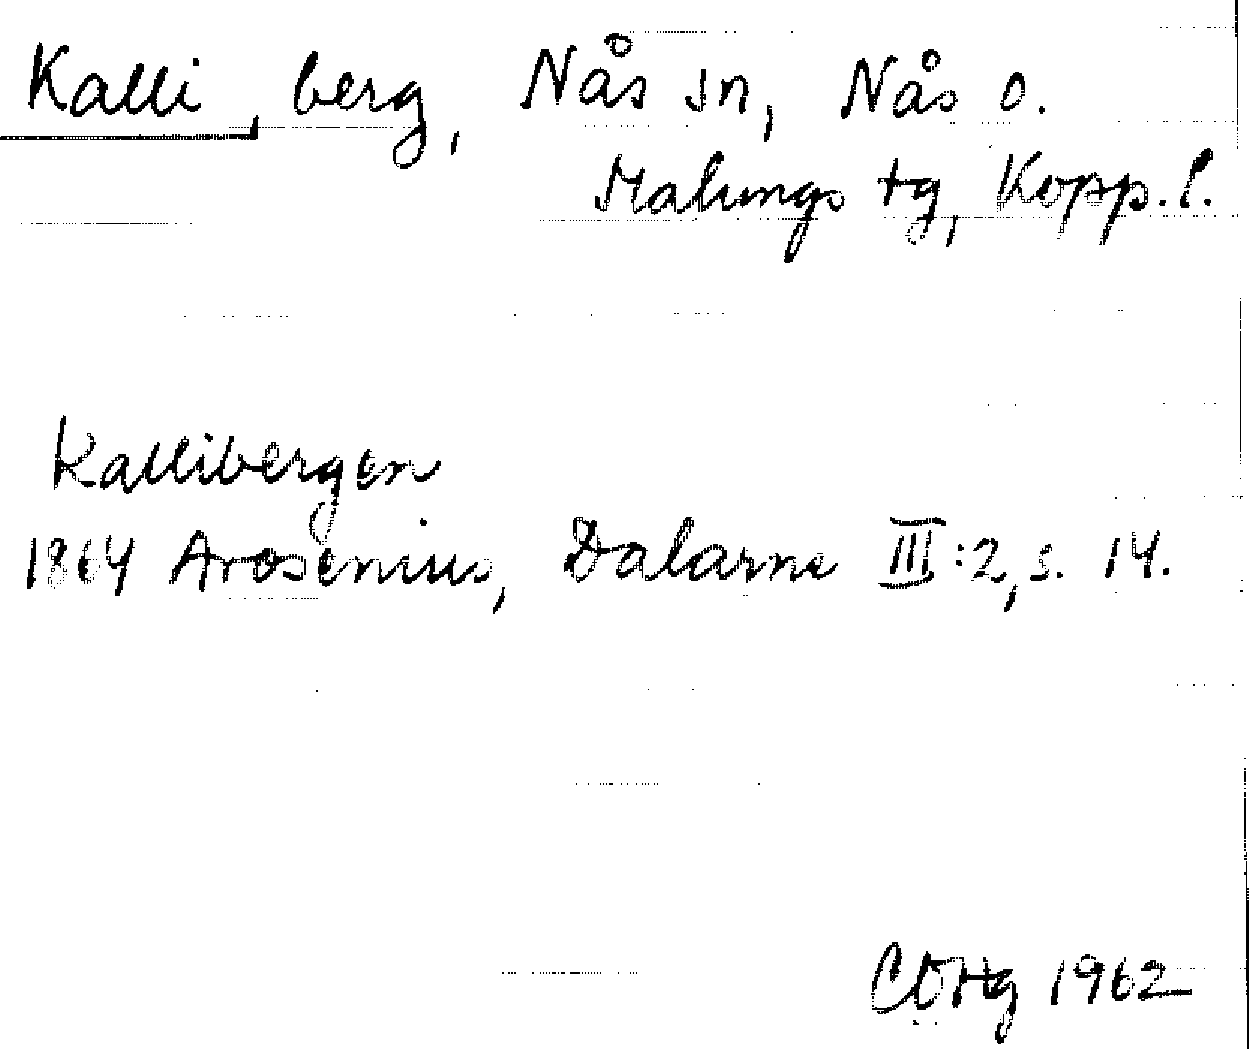 Kalli, berg, Nås sn, Nås o.
Malungs tg, Kopp. l.
Kallibergen
1864 Arosenius, Dalarne III:2, s. 14.
1962